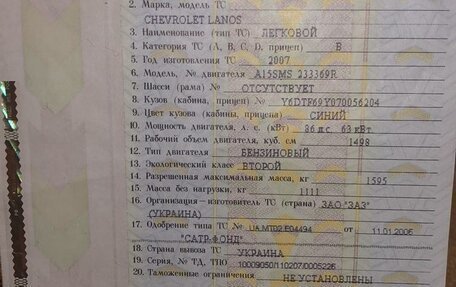 2. Марка, модель ТС
CHEVROLET LANOS
3. Наименование (тип ТС) ЛЕГКОВОЙ
4. Категория ТС (А, В, С, D, прицеп) В
5. Год изготовления ТС 2007
6. Модель, № двигателя A15SMS 233369R
7. Шасси (рама) № ОТСУТСТВУЕТ
8. Кузов (кабина, прицеп) № Y6DTF69Y070056204
9. Цвет кузова (кабины, прицепа) СИНИЙ
10. Мощность двигателя, л. с. (кВт) 86 л.с. 63 кВт
11. Рабочий объем двигателя, куб. см 1498
12. Тип двигателя БЕНЗИНОВЫЙ
13. Экологический класс ВТОРОЙ
14. Разрешенная максимальная масса, кг 1595
15. Масса без нагрузки, кг 1111
16. Организация—изготовитель ТС (страна) ЗАО "ЗАЗ"
(УКРАИНА)
17. Одобрение типа ТС № UA.MT02.E04494 от 11.01.2006
"САТР-ФОНД"
18. Страна вывоза ТС УКРАИНА
19. Серия, № ТД, ТПО 10009050/110207/0005226
20. Таможенные ограничения НЕ УСТАНОВЛЕНЫ